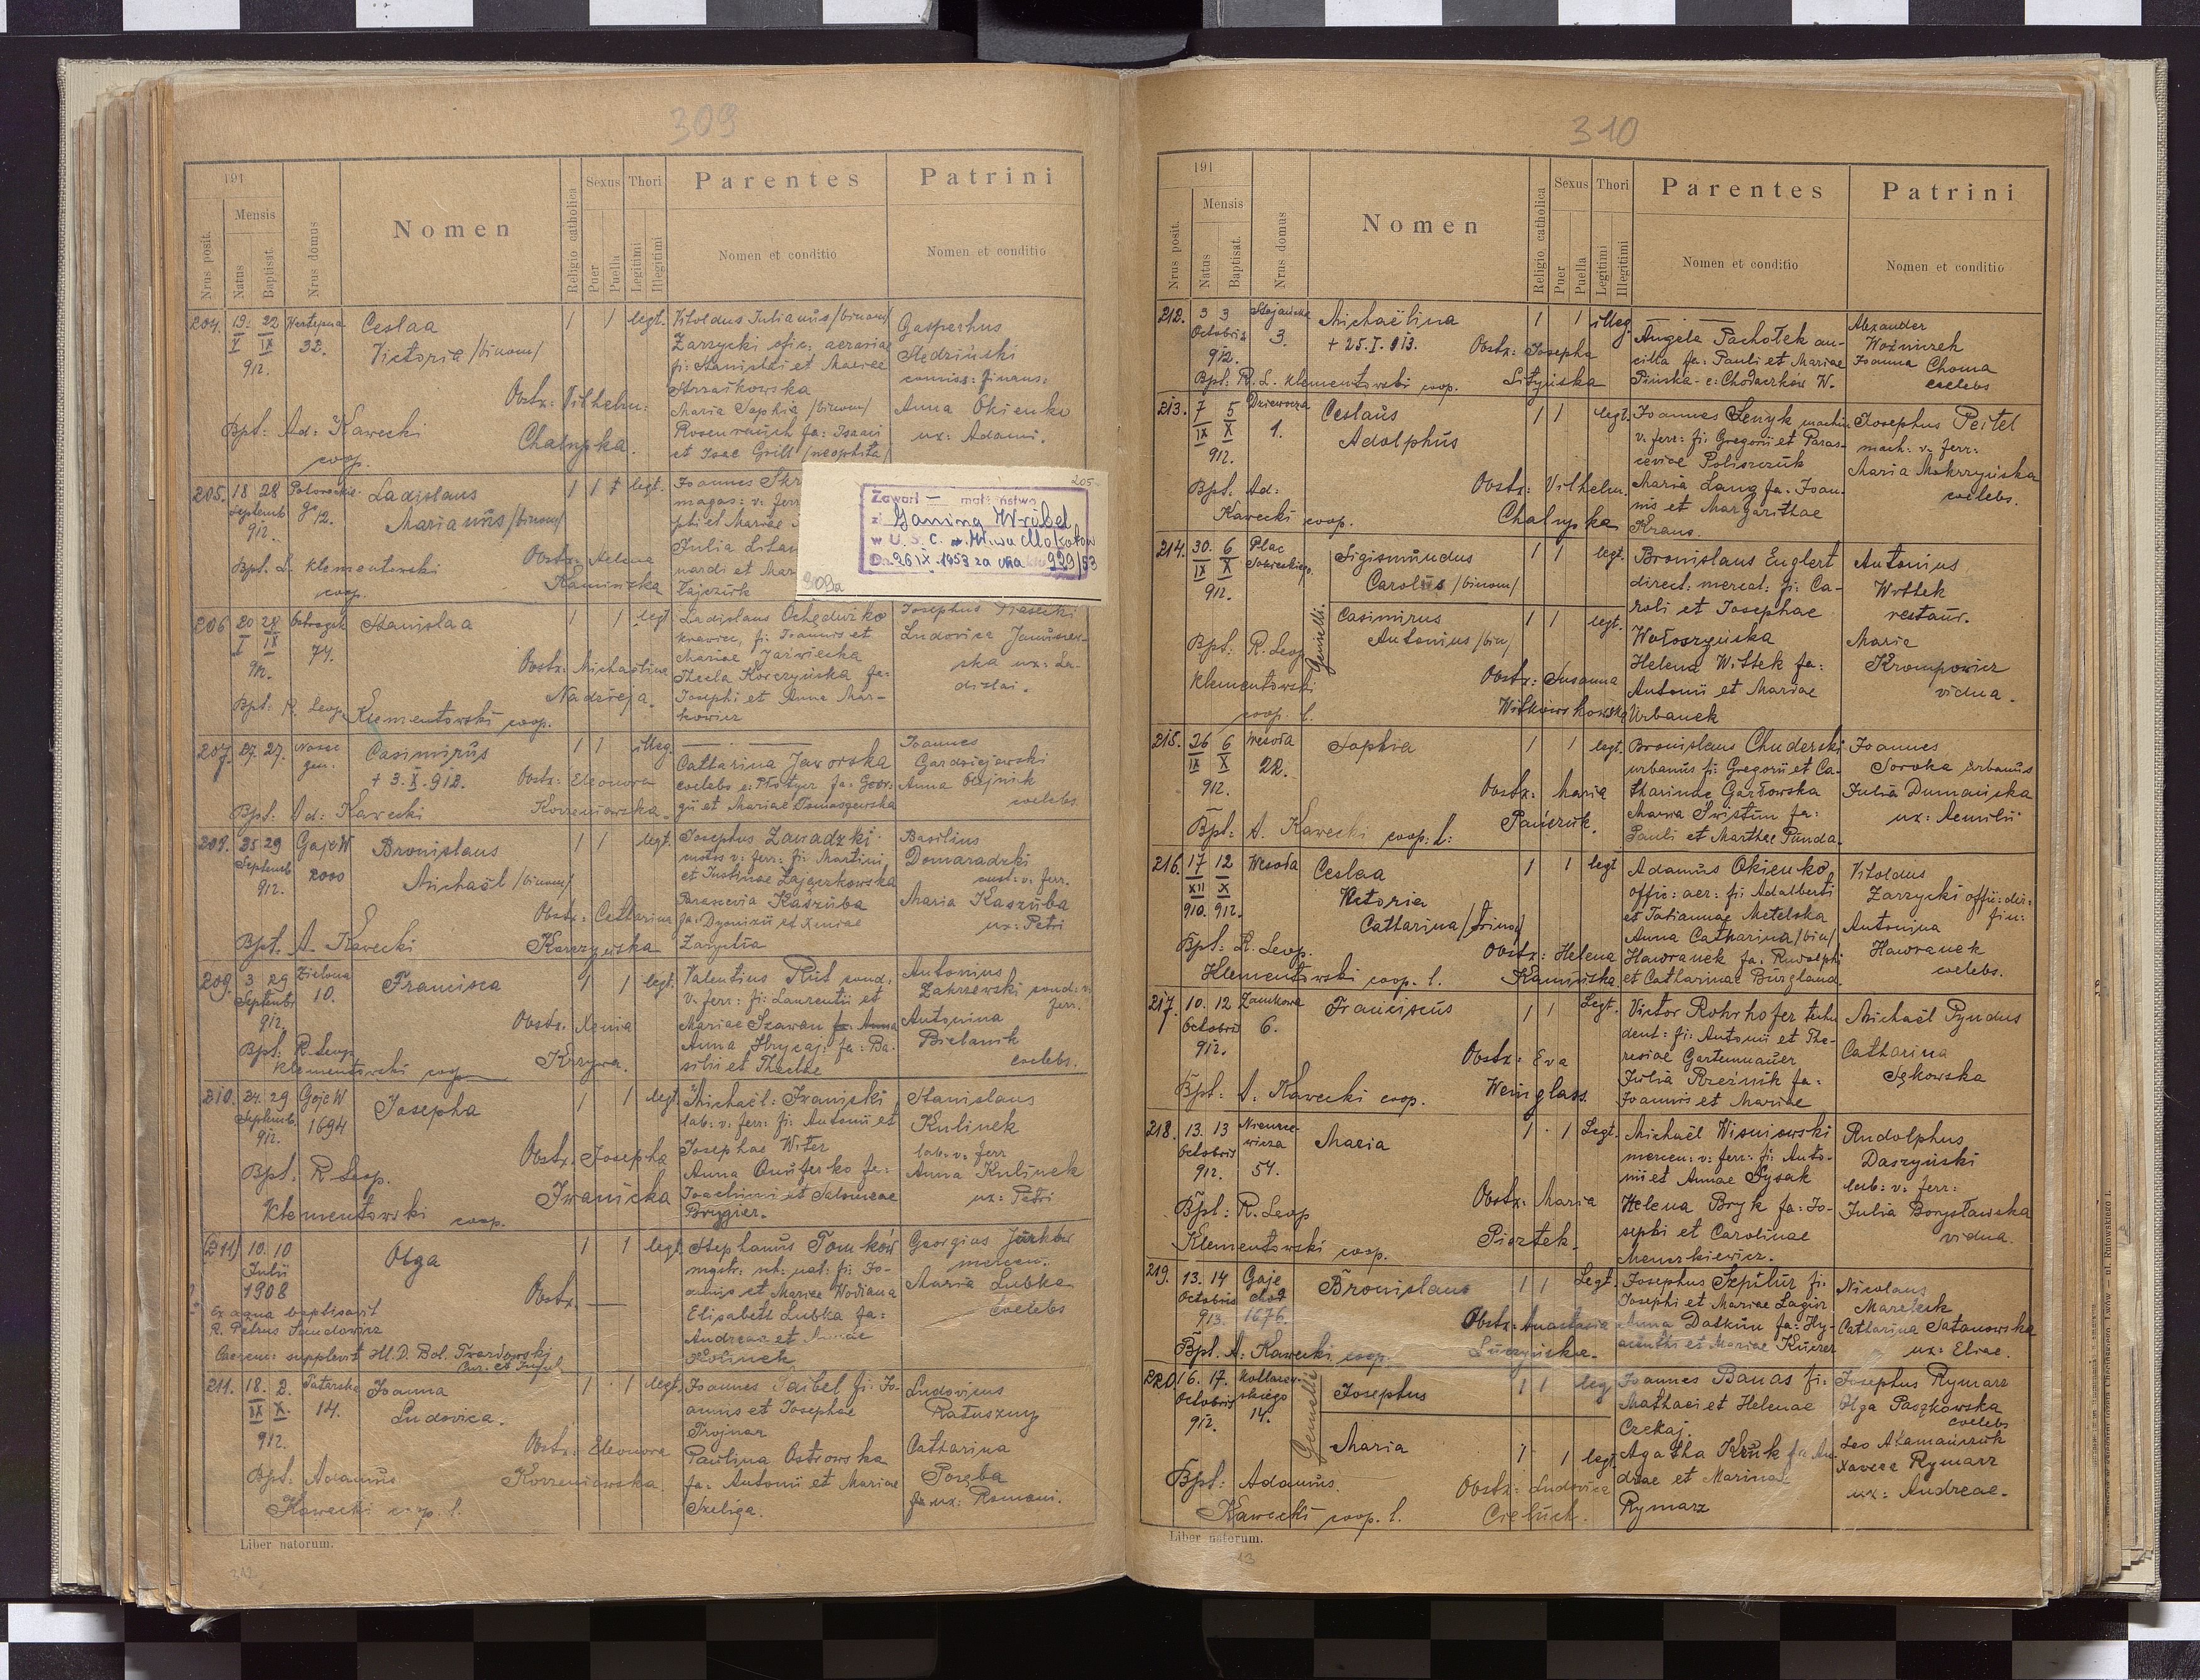 309
191
Nrus posit.
Mensis
Natus
Baptisat.
Nrus domus
Nomen
Religio catholica
Sexus
Puer
Puella
Thori
Legitimi
Illegitimi
Parentes
Nomen et conditio
Patrini
Nomen et conditio
204. 19. 22
V IX
912.
32.
Ceslaa
Victoria /binom/
1 1 legt.
Obstx: Vilhelm:
Chalupka.
Bpt: Ad: Kawecki
coop.
Vitoldus Iulianus /binom/
Zarzycki ofic: aerariae
fi: Stanislai et Mariae
Maria Sophia /binom/
Rosenrauch fa: Isaaci
et Isac Grill /neophita/
Gasparhus
Sędziński
comiss: finans:
Anna Okienko
ux: Adami.
205. 18 28
Septemb
912.
12.
Ladislaus
Marianus /binom/
1 1 legt.
Bpt. L. Klementowski
coop.
Obstx: Helena
Kamińska
Joannes Skr
magas: v: ferr
phi et Mariae
Julia Litau
nardi et Mar
Zajczuk
205
Zawarł — małżeństwo
z Janiną Wróbel
w U.S.C. W-wa Mokotów
Dn 26 IX 1953 za Nr aktu 999/53
309a
206 20 28
I IX
74.
Stanislaa
1 1 legt
Obstx: Michaelina
Nadzieja.
Bpt: R. Leop. Klementowski coop.
Ladislaus Ochęduzko
krawiec, fi: Joannis et
Mariae Jarwiecka
Thecla Korczyńska fa:
Josephi et Anna Mar-
kowicz
Josephus Piasecki
Ludovica Janiszew-
ska ux: La-
dislai.
207. 27. 27.
Casimirus
+ 3. X. 912.
1 1 illeg.
Obstx: Eleonora
Korzeniowska.
Bpt: Ad: Kawecki
Catharina Jaworska
coelebs e: Płotycz fa: Geor-
gii et Mariae Tomaszewska
Joannes
Gardziejewski
Anna Olejnik
coelebs
208. 25 29
Septemb
912.
Gaje W
2000
Bronislaus
Michaël /binom/
1 1 legt.
Obstx: Catharina
Karczyńska
Bpt. A. Kawecki
Josephus Zawadzki
motor v: ferr: fi: Martini
et Justinae Zajączkowska
Parascevia Kaszuba
fa: Dyonizii et Xeniae
Zarycka
Basilius
Domaradzki
cust: v: ferr.
Maria Kaszuba
ux: Petri
209. 3 29
Septembr
912.
Zielona
10.
Francisca
1 1 legt.
Obstx. Xenia
Krzywa.
Bpt. R. Leop.
Klementowski coop
Valentius Rut cond.
v. ferr: fi: Laurentii et
Mariae Szawan
Anna Hrycaj: fa: Ba-
silii et Theclae
Antonius
Zakrzewski cond: v:
ferr.
Antonina
Bielanik
coelebs.
210. 24. 29
Septemb.
912.
Gaje W
1694
Josepha
1 1 legt.
Obstx. Josepha
Iwanicka
Bpt: R Leop.
Klementowski coop.
Michaël: Franiski
lab: v: ferr: fi: Antonii et
Josephae Witer
Anna Onuferko fa:
Joachimi et Salomeae
Brygier.
Stanislaus
Kulinek
lab: v: ferr
Anna Kulinek
ux: Petri
211) 10. 10
Julii
1908
Olga
1 1 legt.
Obstx. —
Ex aqua baptisavit
R. Petrus Sandowicz
Caerem: supplevit Ill. D. Bol. Twardowski
Cur. et Inful.
Stephanus Tomków
mgstr: sch: nat: fi: Jo-
annis et Mariae Wodiana
Elisabeth Lubka fa:
Andreae et Annae
Kolinek
Georgius Jurków
mercen.
Maria Lubka
coelebs
211. 18. 2.
IX X.
912.
Tatarska
14.
Joanna
Ludovica.
1 1 legt.
Obstx: Eleonora
Korzeniowska.
Bpt: Adamus
Kawecki coop. l.
Joannes Taibel fi: Jo-
annis et Josephae
Trojnar
Paulina Ostrowska
fa: Antonii et Mariae
Szeliga.
Ludovicus
Ratuszny
Catharina
Poręba
ux: Romani.
Liber natorum.
310
191
Nrus posit.
Mensis
Natus
Baptisat.
Nrus domus
Nomen
Religio catholica
Sexus
Puer
Puella
Thori
Legitimi
Illegitimi
Parentes
Nomen et conditio
Patrini
Nomen et conditio
212. 3 3
Octobris
912.
3.
Michaëlina
+ 25. I. 913.
1 1 illeg.
Obstx: Josepha
Bpt: R. L. Klementowski coop.
Angela Pachołek an-
cilla fa: Pauli et Mariae
Pińska - e: Chodaczków W.
Alexander
Woźniczek
Joanna Choma
coelebs
213. 7 5
IX X
912.
1.
Ceslaus
Adolphus
1 1 legt.
Bpt. Ad:
Kawecki coop.
Obstx: Vilhelm.
Chalupka
Joannes Senyk machin
v. ferr: fi: Gregorii et Paras-
ceviae Poliszczuk
Maria Lang fa: Joan-
nis et Margarithae
Kraus.
Josephus Peitel
mach: v: ferr:
Maria Mokrzyńska
coelebs.
214. 30. 6
IX X
912.
Plac
Sobieskiego
Gemelli.
Sigismundus
Carolus /binom/
1 1 legt.
Casimirus
Antonius /bin/
1 1 legt.
Bpt: R. Leop
Klementowski
coop. l.
Obstx: Susanna
Witkowskowska
Bronislaus Englert
direct: mercat: fi: Ca-
roli et Josephae
Wołoszyńska
Helena Wittek fa:
Antonii et Mariae
Urbanek
Antonius
Wittek
restaur.
Maria
Krompowicz
vidua.
215. 26 6
IX X
912.
Wesoła
22.
Sophia
1 1 legt.
Obstx: Maria
Panczuk.
Bpt: A. Kawecki coop. l:
Bronislaus Chuderski
urbanus fi: Gregorii et Ca-
tharinae Garbowska
Maria Swistun fa:
Pauli et Marthae Punda.
Joannes
Soroka urbanus
Julia Dumańska
ux: Aemilii
216. 17 12
XII X
910. 912.
Wesoła
Ceslaa
Victoria
Catharina /trinom/
1 1 legt
Bpt: R. Leop.
Klementowski coop. l.
Obstx: Helena
Kamińska
Adamus Okienko
offic: aer: fi: Adalberti
et Tatiannae Metelska
Anna Catharina /bin/
Hawranek fa: Rudolphi
et Catharinae Burgland.
Vitoldus
Zarzycki offic: dir:
fin:
Antonina
Hawranek
coelebs.
217. 10. 12
Octobris
912.
Zamkowa
6.
Franciscus
1 1 Legt.
Obstx: Eva
Weinglass.
Bpt: A. Kawecki coop.
Victor Rohrhofer techn
dent: fi: Antonii et The-
resiae Gartenmauer
Julia Rzeźnik fa:
Joannis et Mariae
Michaël Pyndus
Catharina
Sękowska
218. 13. 13
Octobris
912.
Niemce-
wicza
54.
Maria
1 1 Legt.
Bpt: R. Leop
Klementowski coop.
Obstx: Maria
Piontek.
Michaël Wiśniowski
mercen: v: ferr: fi: Anto-
nii et Annae Sysak
Helena Bryk fa: Jo-
sephi et Carolinae
Mazurkiewicz.
Rudolphus
Daszyński
lab: v: ferr:
Julia Borysławska
vidua.
219. 13. 14
Octobris
913.
Gaje
1676.
Bronislaus
1 1 Legt.
Obstx: Anastasia
Łuczyńska.
Bpt. A. Kawecki coop.
Josephus Szpitur fi:
Josephi et Mariae Łagisz
Anna Datkun fa: Hy-
acinthi et Mariae Kuczer
Nicolaus
Mareleck
Catharina Satanowska
ux: Eliae.
220. 16. 17.
Octobris
912.
14.
Gemelli
Josephus
1 1 leg
Maria
1 1 legt.
Bpt: Adamus.
Kawecki coop. l.
Obstx: Ludovica
Cieluch.
Joannes Banas fi:
Mathaei et Helenae
Czekaj.
Agatha Kruk fa: An-
dreae et Marinae
Rymarz
Josephus Rymarz
Olga Paszkowska
coelebs
Leo Atamańczuk
Xavera Rymarz
ux: Andreae.
Liber natorum.
13